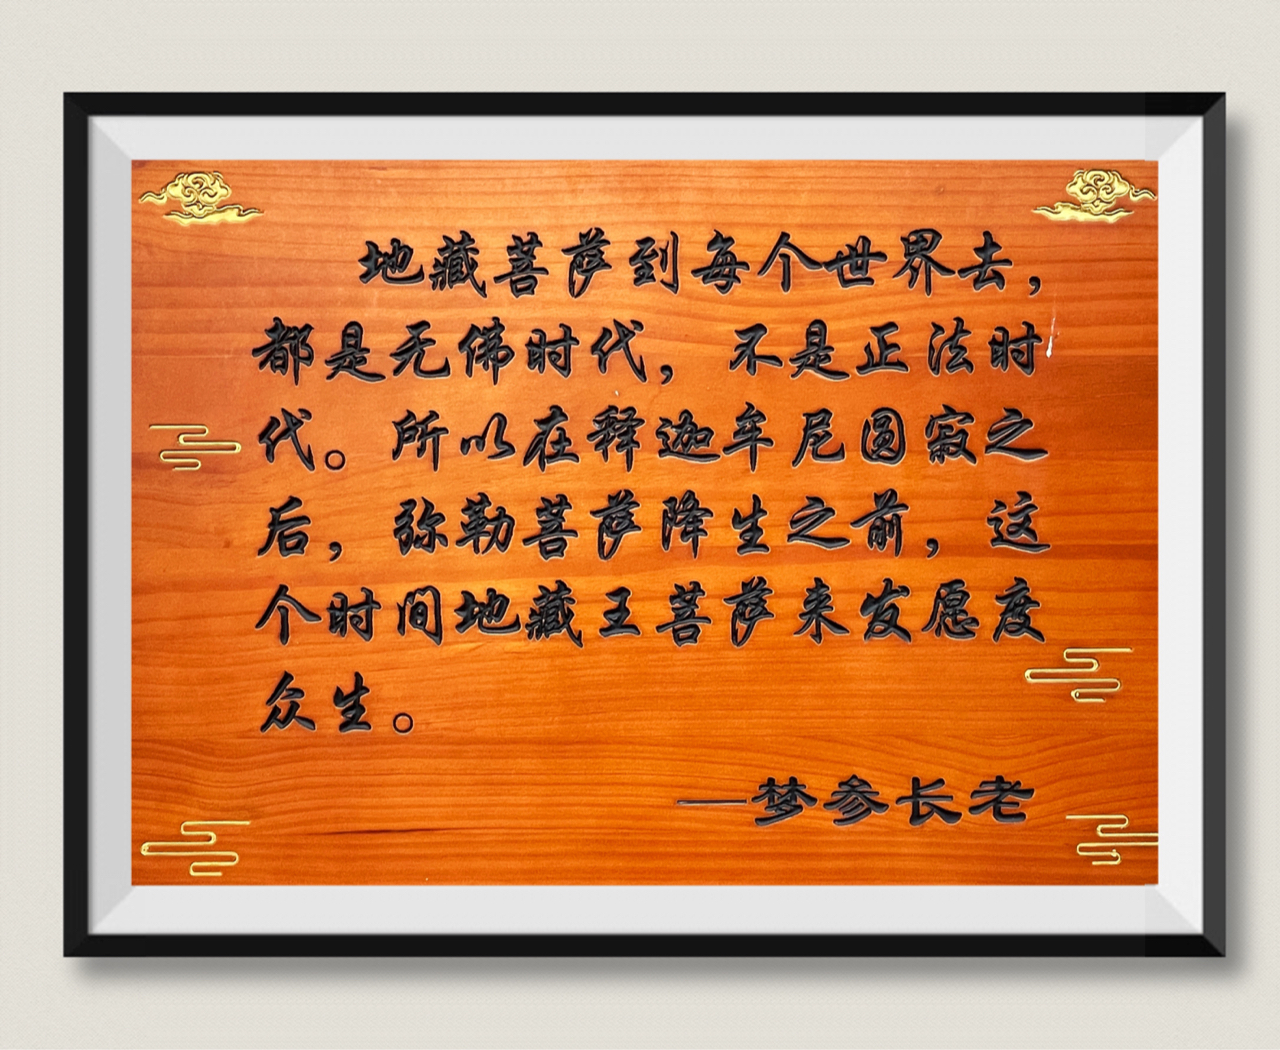 地藏菩萨到每个世界去，
都是无佛时代，不是正法时
代。所以在释迦牟尼圆寂之
后，弥勒菩萨降生之前，这
个时间地藏王菩萨来发愿度
众生。
—梦参长老